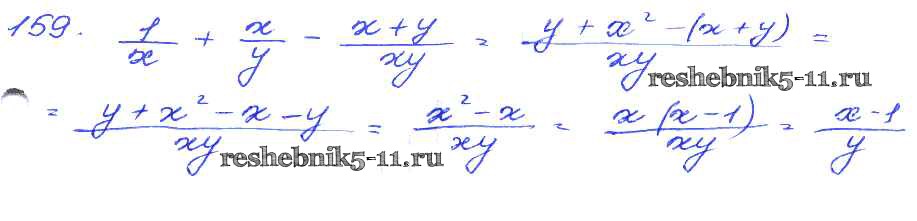 159. 1/x + x/y - (x+y)/(xy) = (y + x² - (x+y))/(xy) =
reshebnik5-11.ru
= (y + x² - x - y)/(xy) = (x² - x)/(xy) = (x(x-1))/(xy) = (x-1)/y
reshebnik5-11.ru